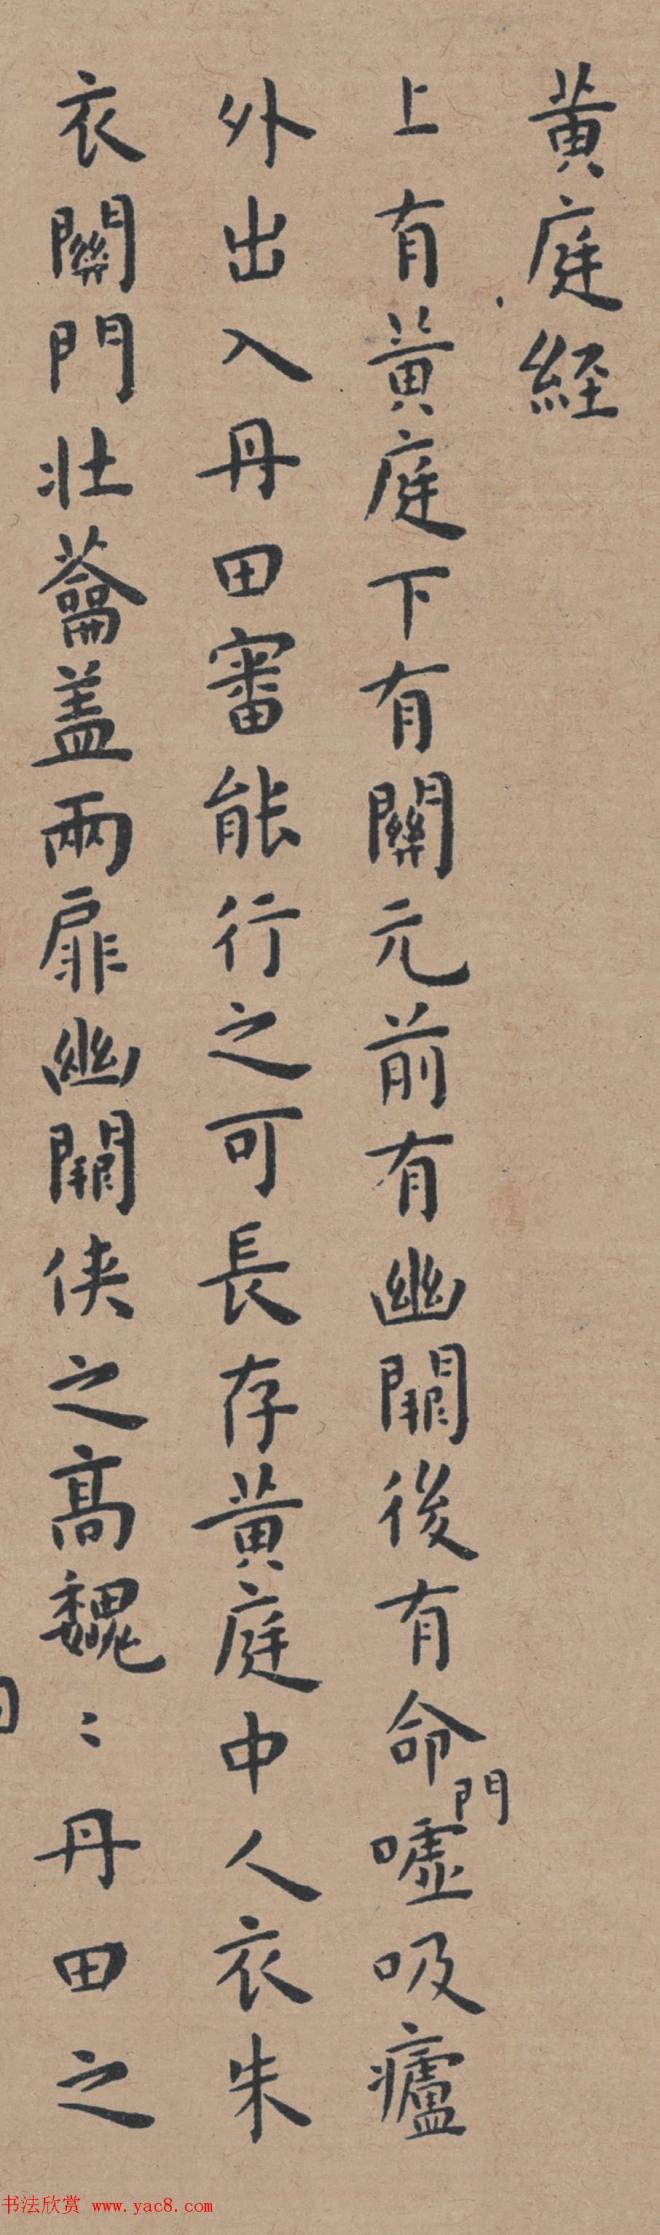 黃庭經
上有黃庭下有關元前有幽闕後有命門噓吸廬
外出入丹田審能行之可長存黃庭中人衣朱
衣關門壯蘥盖兩扉幽闕俠之高魏〻丹田之
书法欣赏 www.yac8.com